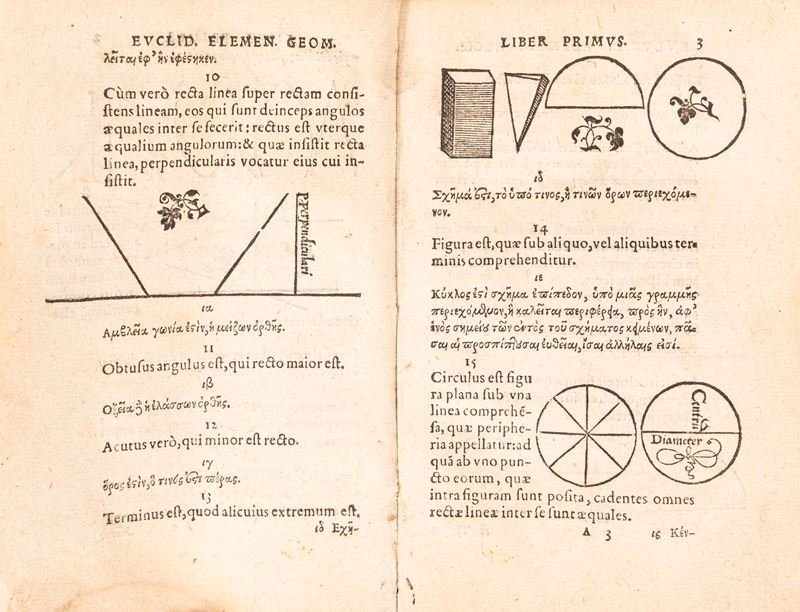 EVCLID. ELEMEN. GEOM.
λεῖται ἐφ' ἣν ἐφέστηκεν.
10
Cùm verò recta linea super rectam consi-
stens lineam, eos qui sunt deinceps angulos
æquales inter se fecerit: rectus est vterque
æqualium angulorum: & quæ insistit recta
linea, perpendicularis vocatur eius cui in-
sistit.
Perpendiculari
ια
Ἀμβλεῖα γωνία ἐστὶν, ἡ μείζων ὀρθῆς.
11
Obtusus angulus est, qui recto maior est.
ιβ
Ὀξεῖα δὲ ἡ ἐλάσσων ὀρθῆς.
12
Acutus verò, qui minor est recto.
ιγ
ὅρος ἐστὶν, ὅ τινός ἐστι πέρας.
13
Terminus est, quod alicuius extremum est.
ιδ Σχῆ-
LIBER PRIMVS. 3
ιδ
Σχῆμά ἐστι, τὸ ὑπό τινος, ἤ τινων ὅρων περιεχόμε-
νον.
14
Figura est, quæ sub aliquo, vel aliquibus ter-
minis comprehenditur.
ιε
Κύκλος ἐστὶ σχῆμα ἐπίπεδον, ὑπὸ μιᾶς γραμμῆς
περιεχόμενον, ἣ καλεῖται περιφέρεια, πρὸς ἣν, ἀφ'
ἑνὸς σημείου τῶν ἐντὸς τοῦ σχήματος κειμένων, πᾶ-
σαι αἱ προσπίπτουσαι εὐθεῖαι, ἴσαι ἀλλήλαις εἰσί.
15
Circulus est figu
ra plana sub vna
linea comprehē-
sa, quæ periphe-
ria appellatur: ad
quā ab vno pun-
cto eorum, quæ
intra figuram sunt posita, cadentes omnes
rectæ lineæ inter se sunt æquales.
Centrū
Diameter
A 3 ις Κέν-